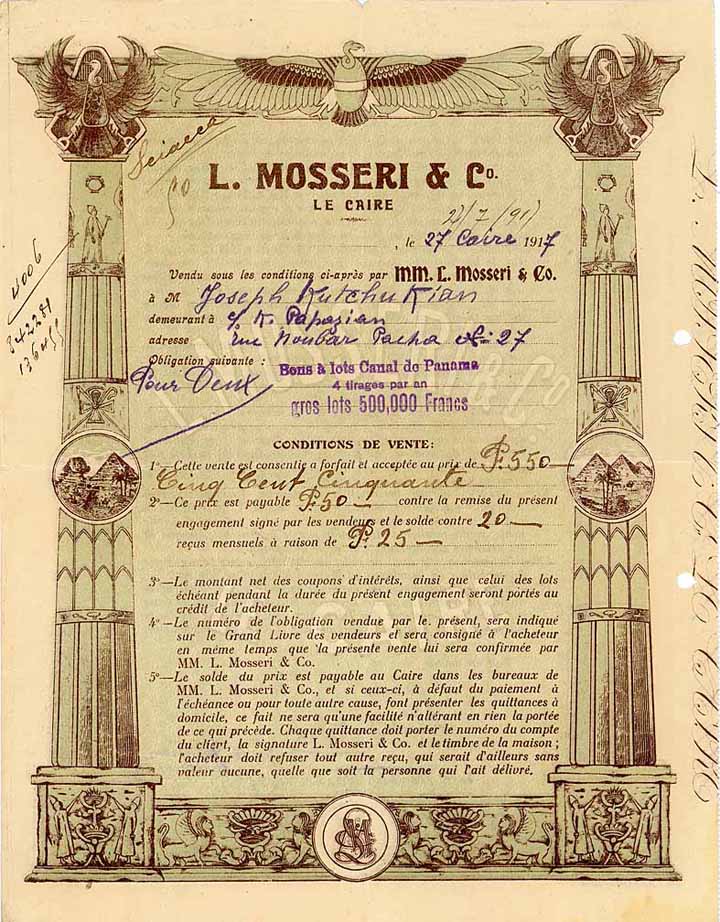 Sciacca
50
L. MOSSERI & Co.
LE CAIRE
, le 27 Caire 1917
4006
342281
Vendu sous les conditions ci-après par MM. L. Mosseri & Co.
à M Joseph Kutchukian
demeurant à c/o K. Papazian
adresse rue Noubar Pacha No 27
Obligation suivante : Bons à lots Canal de Panama
Pour Deux 4 tirages par an
gros lots 500,000 Francs
CONDITIONS DE VENTE:
1o—Cette vente est consentie a forfait et acceptée au prix de P. 550—
Cinq Cent Cinquante
2o—Ce prix est payable P. 50— contre la remise du présent
engagement signé par les vendeurs et le solde contre 20—
reçus mensuels à raison de P. 25—
3o—Le montant net des coupons d'intérêts, ainsi que celui des lots
échéant pendant la durée du présent engagement seront portés au
crédit de l'acheteur.
4o—Le numéro de l'obligation vendue par le présent, sera indiqué
sur le Grand Livre des vendeurs et sera consigné à l'acheteur
en même temps que la présente vente lui sera confirmée par
MM. L. Mosseri & Co.
5o—Le solde du prix est payable au Caire dans les bureaux de
MM. L. Mosseri & Co., et si ceux-ci, à défaut du paiement à
l'échéance ou pour toute autre cause, font présenter les quittances à
domicile, ce fait ne sera qu'une facilité n'altérant en rien la portée
de ce qui précède. Chaque quittance doit porter le numéro du compte
du client, la signature L. Mosseri & Co. et le timbre de la maison ;
l'acheteur doit refuser tout autre reçu, qui serait d'ailleurs sans
valeur aucune, quelle que soit la personne qui l'ait délivré.